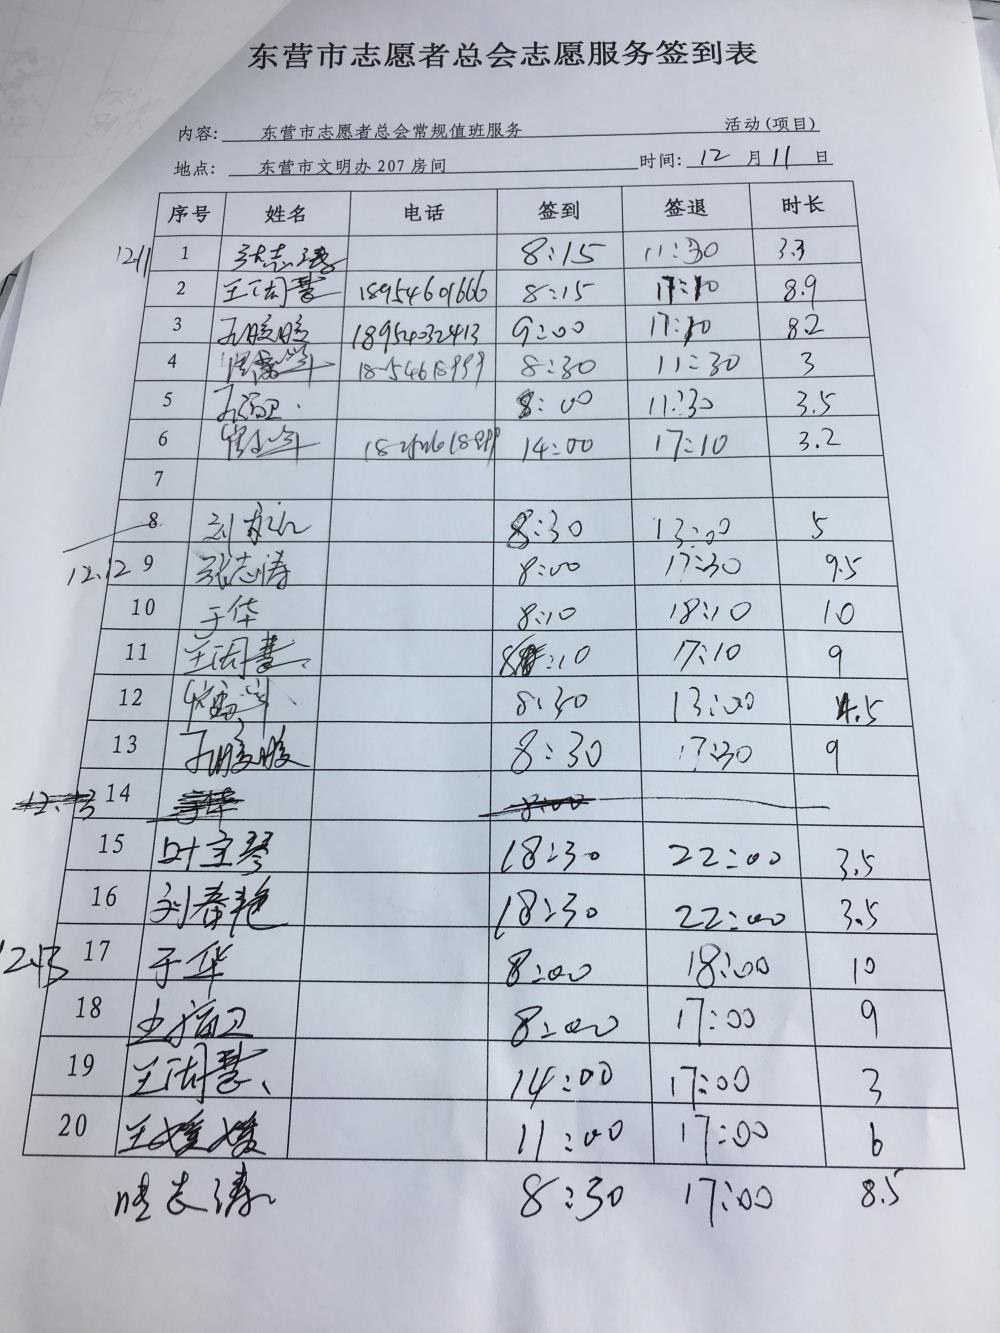 东营市志愿者总会志愿服务签到表
内容: 东营市志愿者总会常规值班服务 活动(项目)
地点: 东营市文明办 207 房间 时间: 12 月 11 日
序号 姓名 电话 签到 签退 时长
12.11 1 张志涛 8:15 11:30 3.3
2 王闰慧 18954601666 8:15 17:10 8.9
3 18954032413 9:00 17:10 8.2
4 8:30 11:30 3
5 8:00 11:30 3.5
6 14:00 17:10 3.2
7
8 8:30 13:00 5
12.12 9 张志涛 8:00 17:30 9.5
10 于华 8:10 18:10 10
11 王闰慧 8:10 17:10 9
12 8:30 13:00 4.5
13 8:30 17:30 9
14
15 叶主琴 18:30 22:00 3.5
16 刘春艳 18:30 22:00 3.5
12.13 17 于华 8:00 18:00 10
18 8:00 17:00 9
19 王闰慧 14:00 17:00 3
20 王媛媛 11:00 17:00 6
志涛 8:30 17:00 8.5